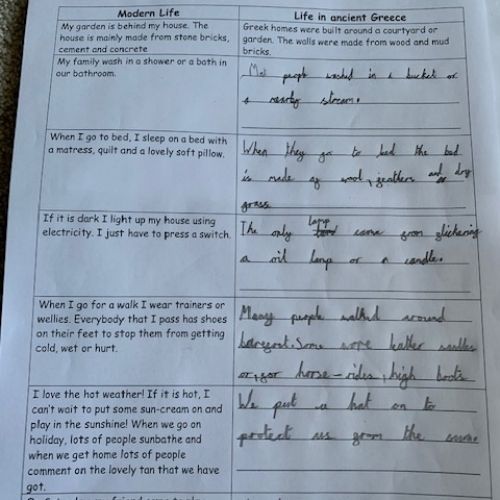 Modern Life
Life in ancient Greece
My garden is behind my house. The
house is mainly made from stone bricks,
cement and concrete
Greek homes were built around a courtyard or
garden. The walls were made from wood and mud
bricks.
My family wash in a shower or a bath in
our bathroom.
peopl washed in a bucket or
a nearby stream.
When I go to bed, I sleep on a bed with
a matress, quilt and a lovely soft pillow.
When they go to bed the bed
is made of wool, feathers and dry
grass
If it is dark I light up my house using
electricity. I just have to press a switch.
The only lamp came from flickering
a oil lamp or a candle.
When I go for a walk I wear trainers or
wellies. Everybody that I pass has shoes
on their feet to stop them from getting
cold, wet or hurt.
Many people walked around
barefoot. Some wore leather
or, for horse-rides, high boots
I love the hot weather! If it is hot, I
can't wait to put some sun-cream on and
play in the sunshine! When we go on
holiday, lots of people sunbathe and
when we get home lots of people
comment on the lovely tan that we have
got.
We put a hat on to
protect us from the